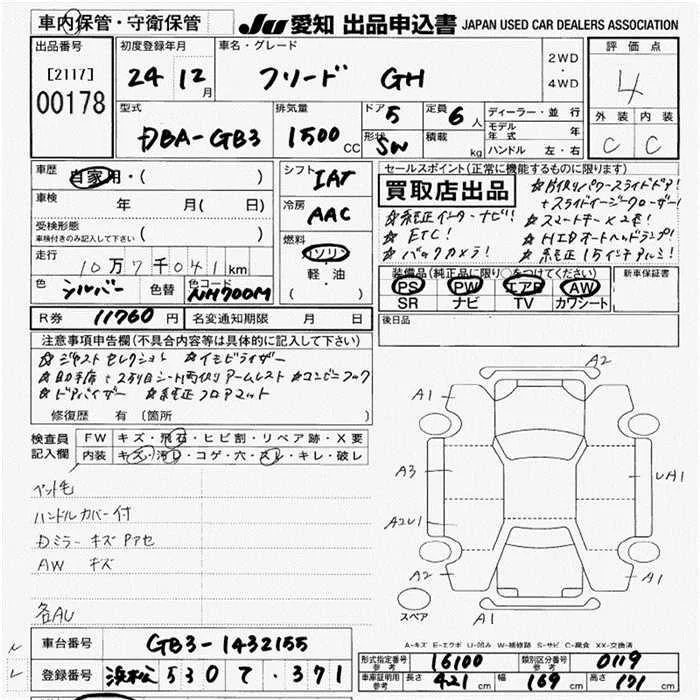 車内保管・守衛保管
JU 愛知 出品申込書 JAPAN USED CAR DEALERS ASSOCIATION
出品番号
[2117]
00178
初度登録年月
24 12 月
車名・グレード
フリード GH
2WD
・
4WD
評価点
4
外装 内装
C C
型式
DBA-GB3
排気量
1500 CC
ドア 5
形状 SW
定員 6 人
積載 kg
ディーラー・並行
モデル年式 年
ハンドル 左・右
車歴
自家用・( )
車検 年 月( 日)
受検形態
車検付きのみ記入して下さい ( )
走行
10万7千041km
色 シルバー 色替 色コード NH700M
シフト IAT
冷房 AAC
燃料
ガソリン
軽・油
( )
セールスポイント(正常に機能するものに限ります)
買取店出品
☆片側パワースライドドア!
+スライドイージークローザー!
☆純正インターナビ! ☆スマートキー×2ヶ!
☆ETC! ☆HIDオートヘッドランプ!
☆バックカメラ! ☆純正15インチアルミ!
装備品(純正品に限り○をつけてください)
PS PW エアB AW
SR ナビ TV カワシート
新車保証書
R券 11760 円 名変通知期限 月 日
後日品
注意事項申告欄(不具合内容等は具体的に記入して下さい)
☆ジャストセレクション ☆イモビライザー
☆助手席+2列目シート両側アームレスト ☆コンビニフック
☆ドアバイザー ☆純正フロアマット
修復歴 有 (箇所 )
検査員記入欄
FW キズ・飛石・ヒビ割・リペア跡・X要
内装 キズ・汚レ・コゲ・穴・スレ・キレ・破レ
ペット毛
ハンドルカバー付
Dミラー キズ Pアセ
AW キズ
各AU
A2
A1
A3
UA1
A2U1
A2
A1
A1
スペア
A-キズ E-エクボ U-凹み W-補修跡 S-サビ C-腐食 XX-交換済
車台番号 GB3-1432155
登録番号 浜松 530 て・371
形式指定番号 参考 16100 類別区分番号 参考 0119
車庫証明用 参考 長さ 421 cm 幅 169 cm 高さ 171 cm